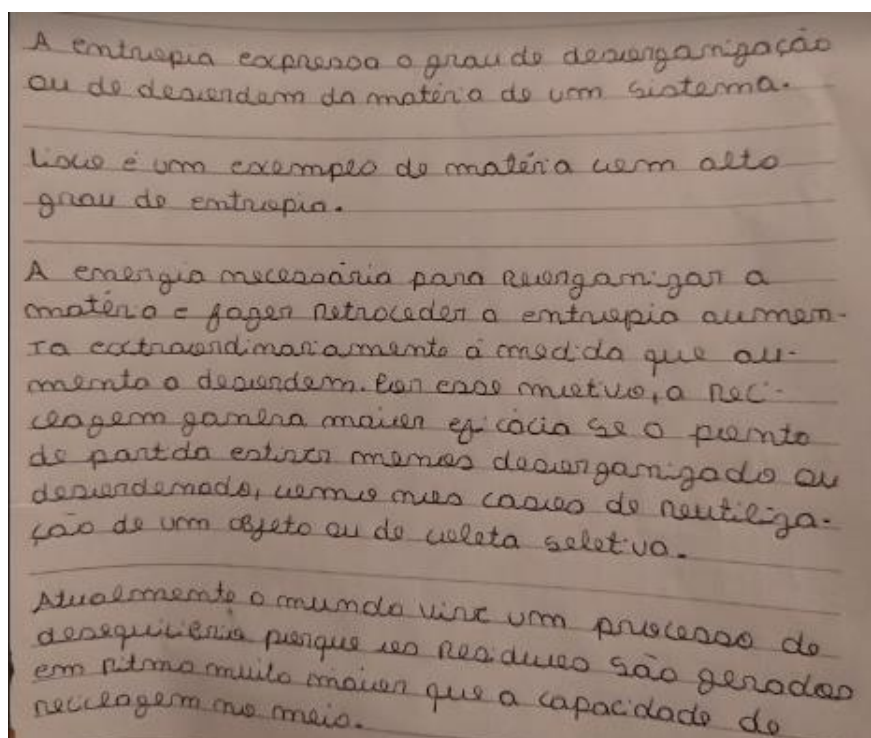 A entropia expressa o grau de desorganização
ou de desordem da matéria de um sistema.
Lixo é um exemplo de matéria com alto
grau de entropia.
A energia necessária para reorganizar a
matéria e fazer retroceder a entropia aumen-
ta extraordinariamente à medida que au-
menta a desordem. Por esse motivo, a reci-
clagem ganha maior eficácia se o ponto
de partda estiver menos desorganizado ou
desordenado, como nos casos de reutiliza-
ção de um objeto ou de coleta seletiva.
Atualmente o mundo vive um processo de
desequilíbrio porque os resíduos são gerados
em ritmo muito maior que a capacidade de
reciclagem no meio.